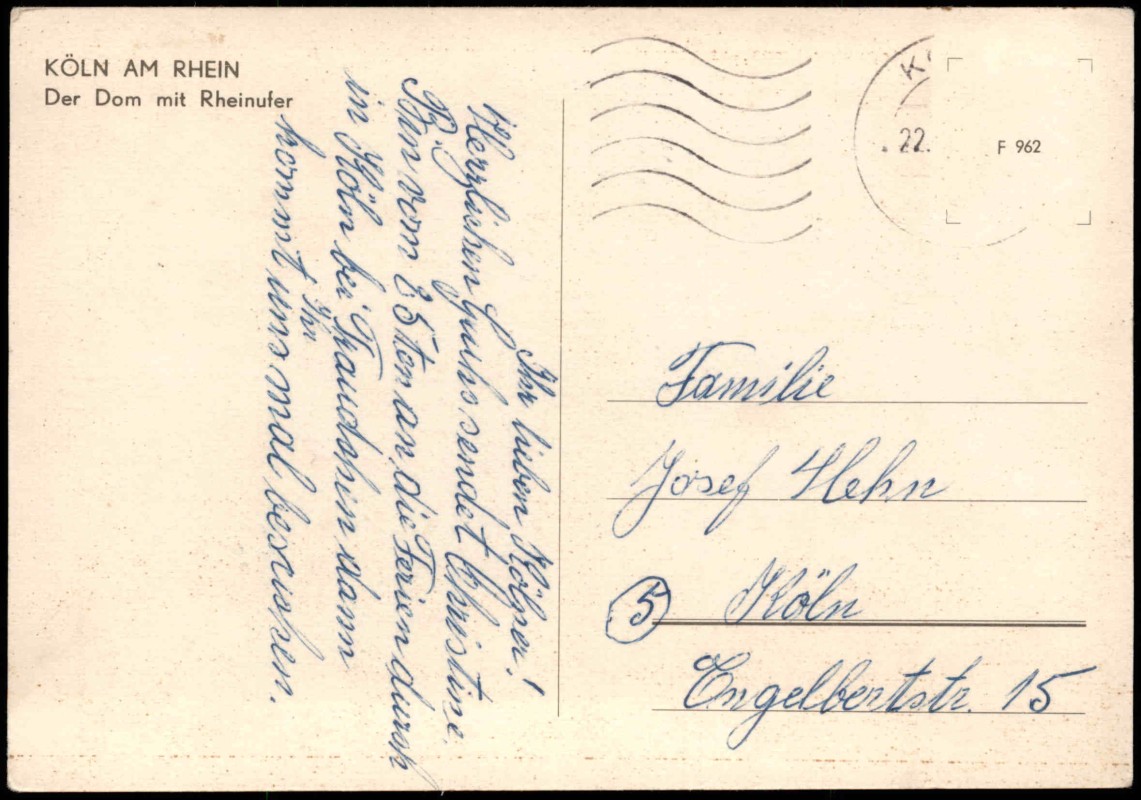 KÖLN AM RHEIN
Der Dom mit Rheinufer
Ihr lieben Kölner!
Herzlichen Gruhs sendet Christine.
vom 25ten an die Ferien durch
in Köln bei dann
kommt Ihr uns mal besuchen.
K
. 22.
F 962
Familie
Josef Hehn
5 Köln
Engelbertstr. 15